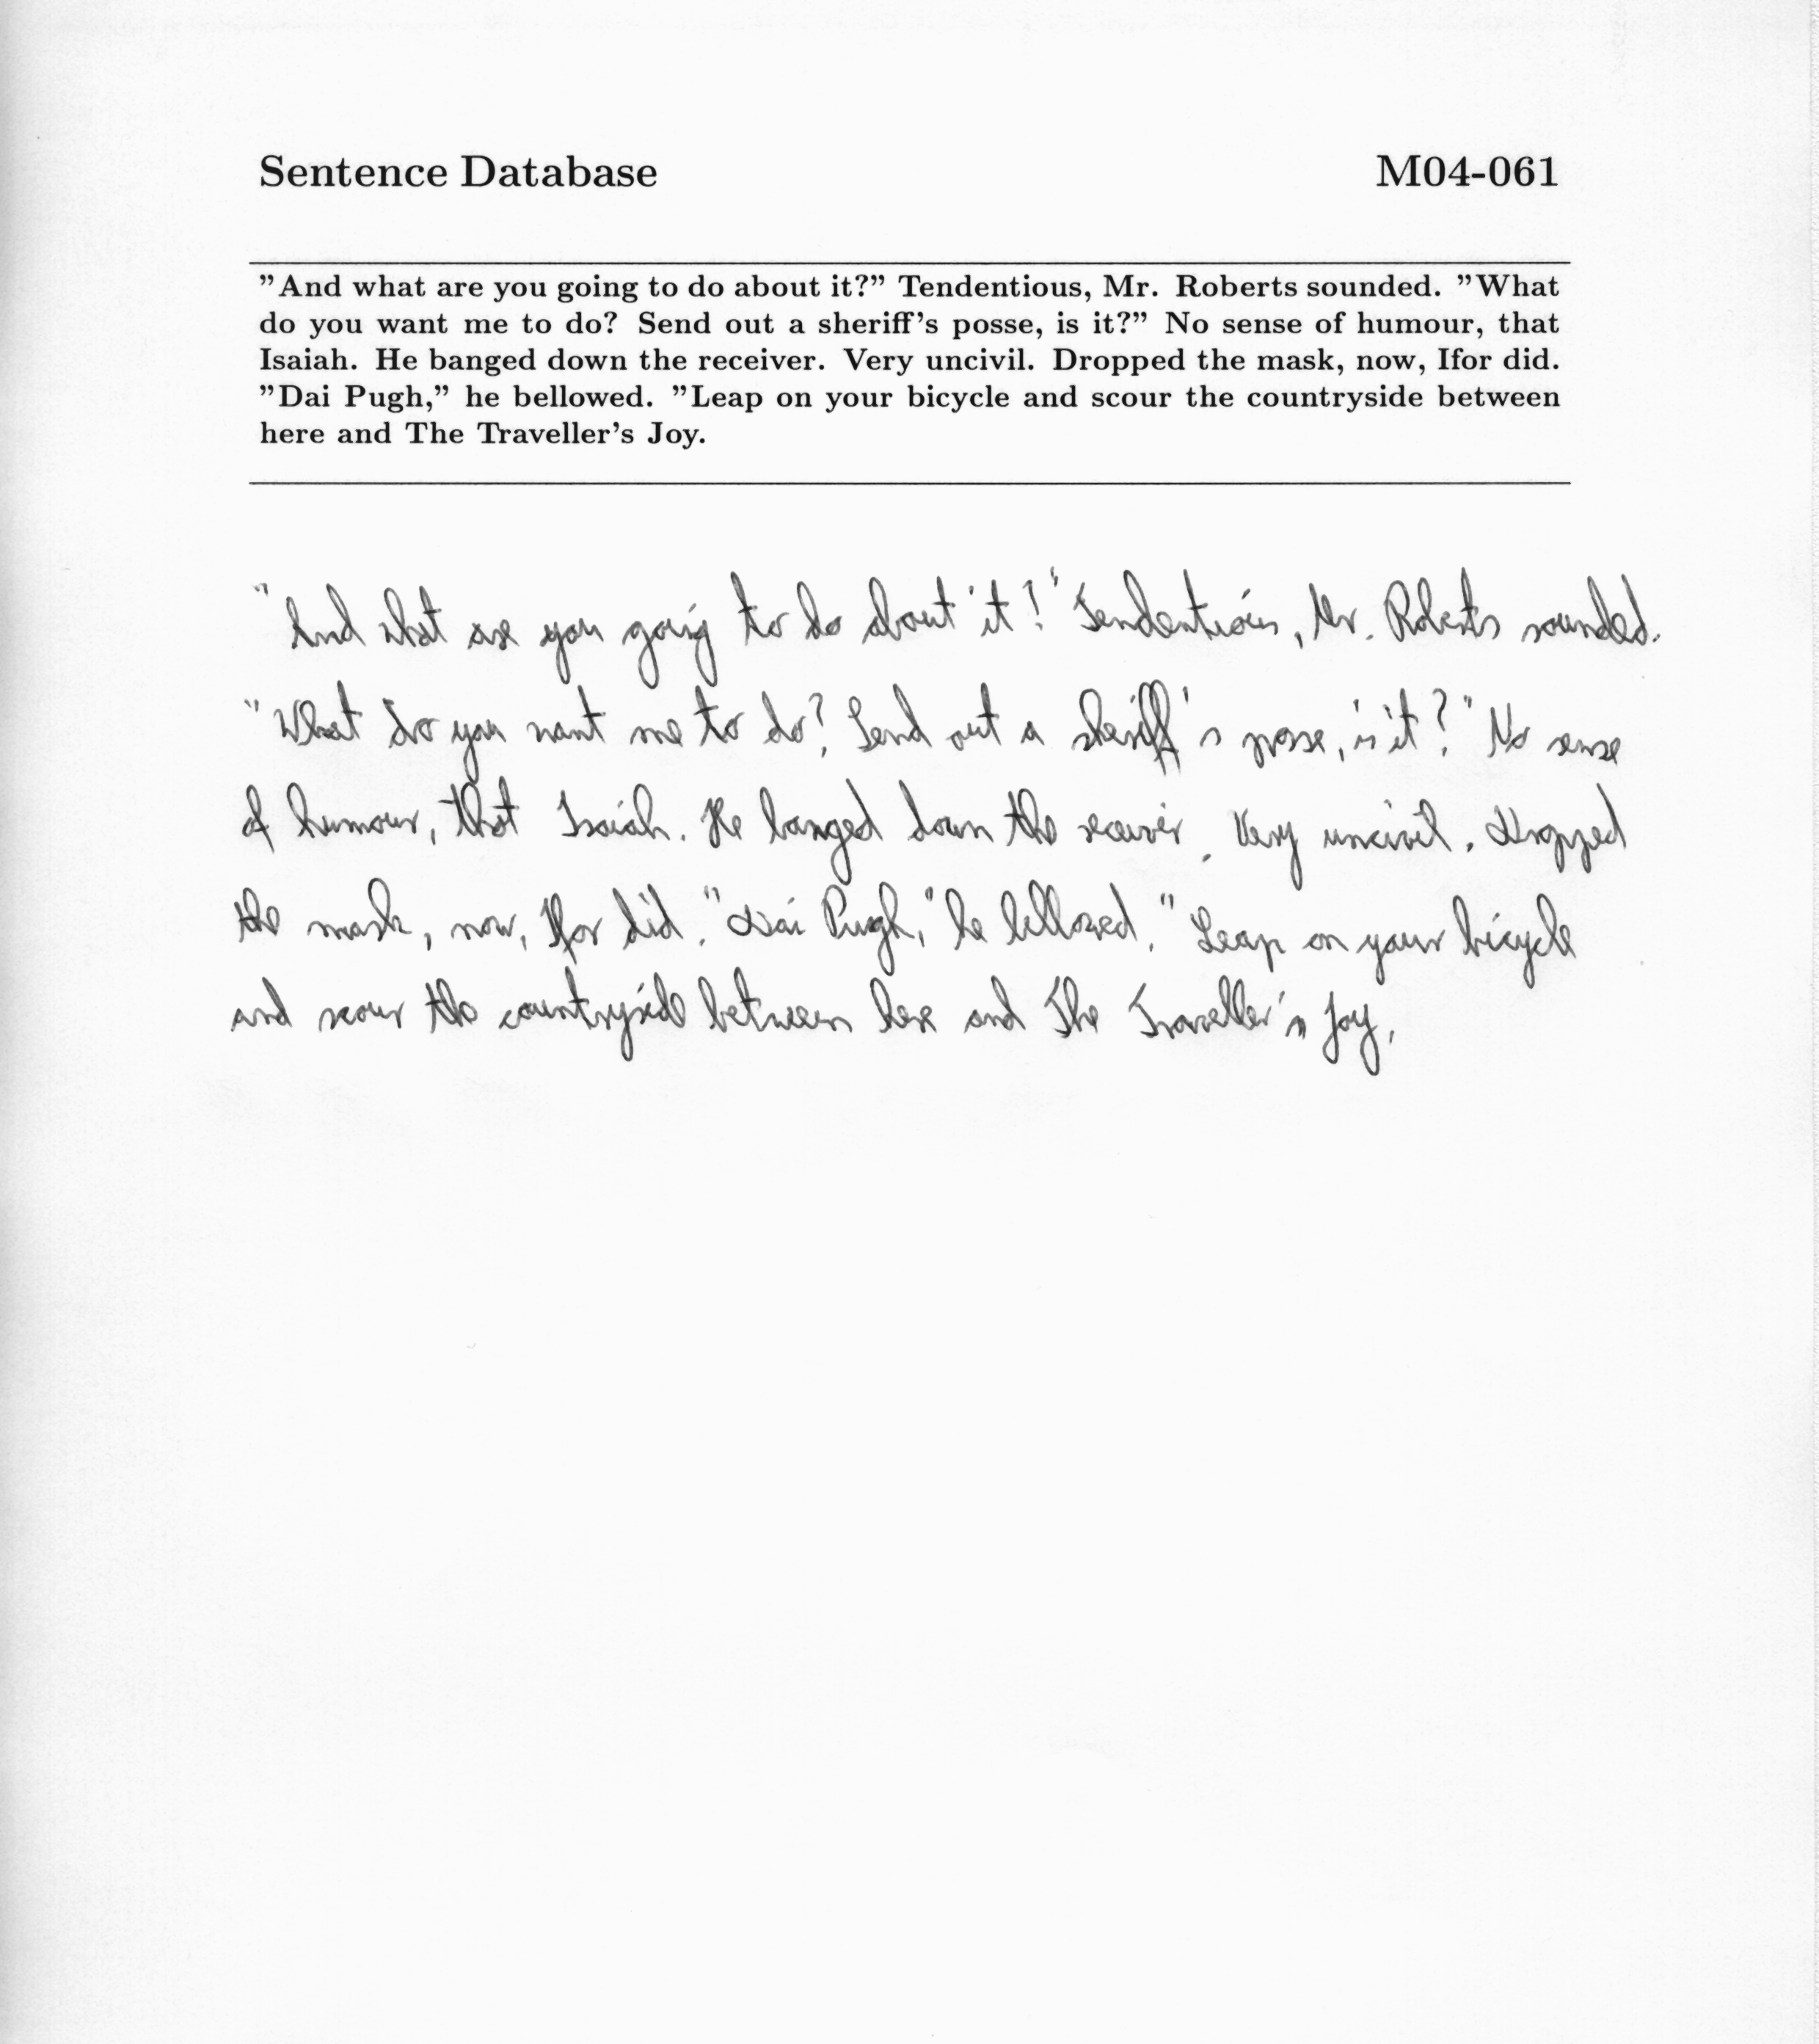 Sentence Database M04-061
"And what are you going to do about it?" Tendentious, Mr. Roberts sounded. "What
do you want me to do? Send out a sheriff's posse, is it?" No sense of humour, that
Isaiah. He banged down the receiver. Very uncivil. Dropped the mask, now, Ifor did.
"Dai Pugh," he bellowed. "Leap on your bicycle and scour the countryside between
here and The Traveller's Joy.
"And what are you going to do about it?" Tendentious, Mr. Roberts sounded.
"What do you want me to do? Send out a sheriff's posse, is it?" No sense
of humour, that Isaiah. He banged down the receiver. Very uncivil. Dropped
the mask, now, Ifor did. "Dai Pugh," he bellowed. "Leap on your bicycle
and scour the countryside between here and The Traveller's Joy.